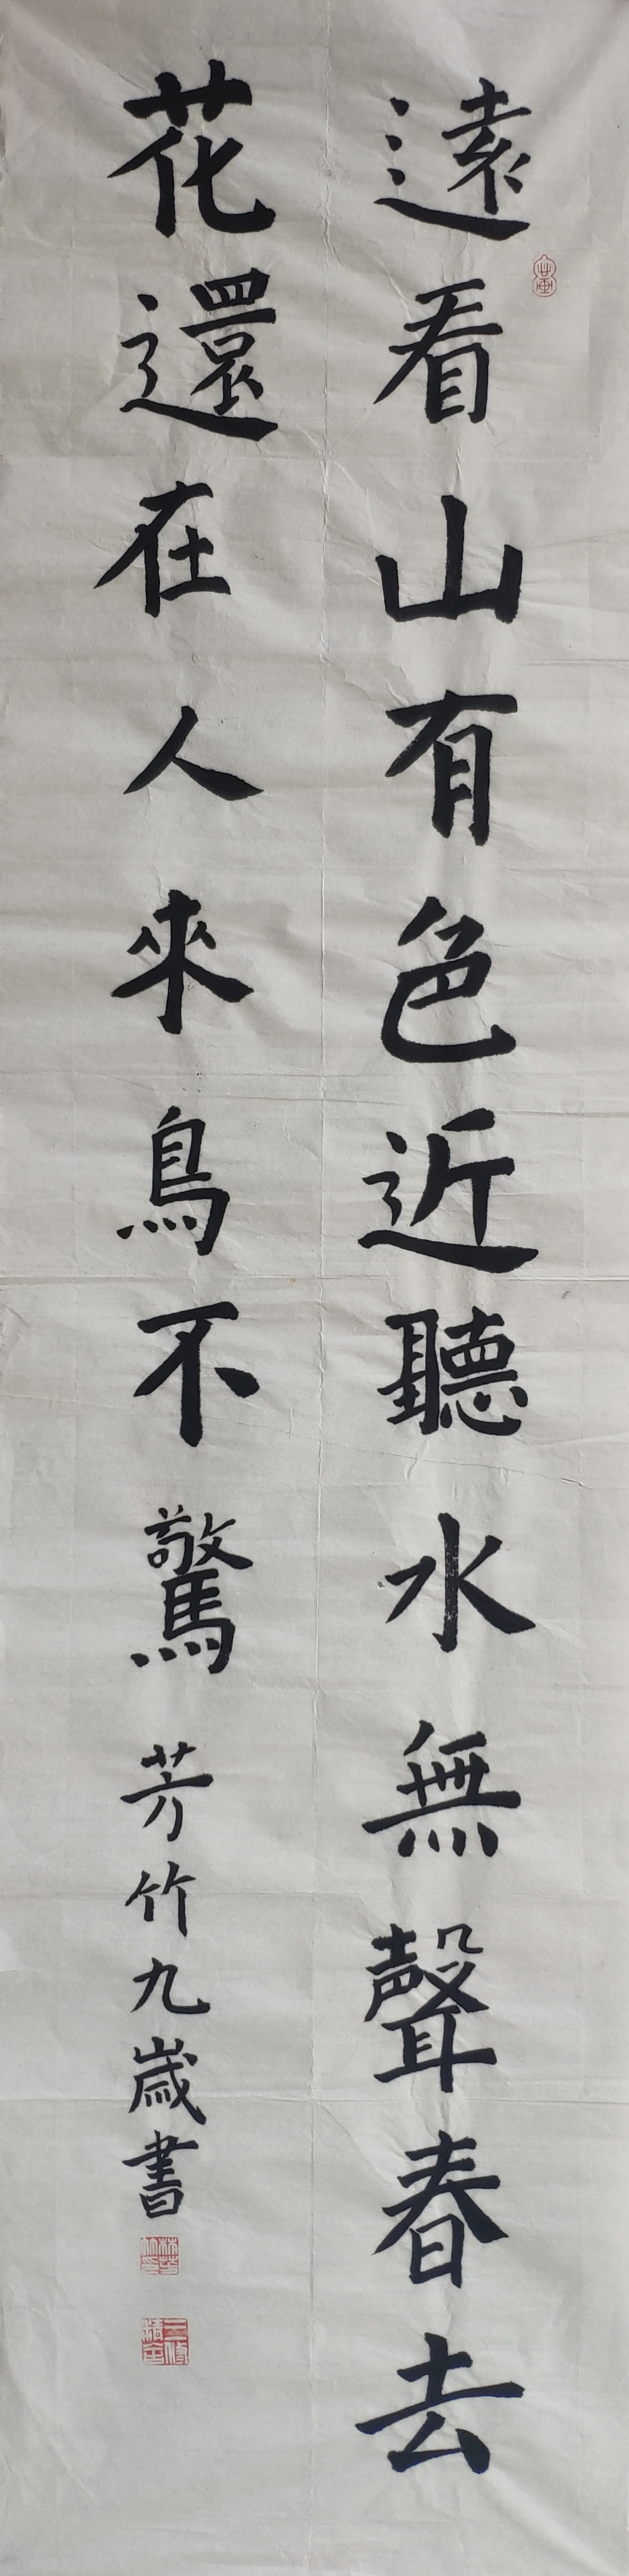 遠看山有色近聽水無聲春去
花還在人來鳥不驚芳竹九歲書